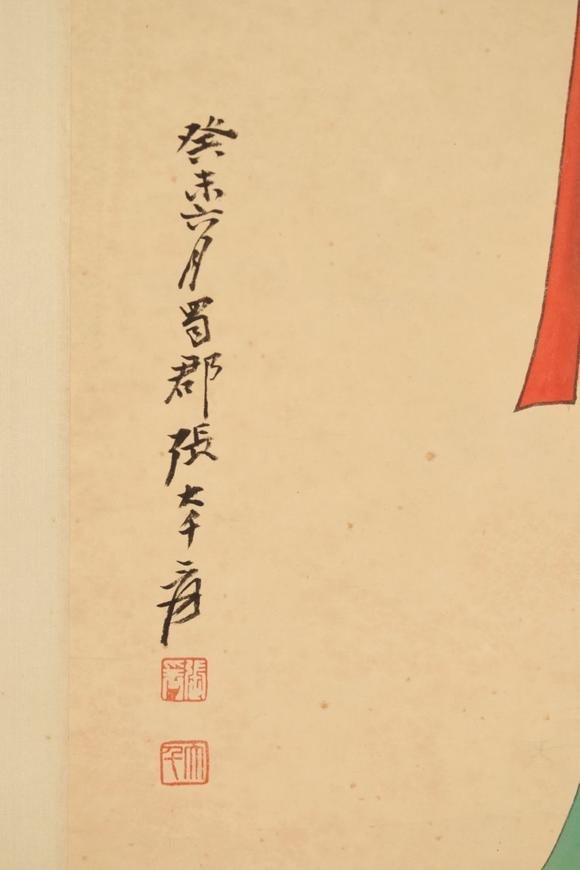 癸未六月蜀郡張大千爰
張爰
大千